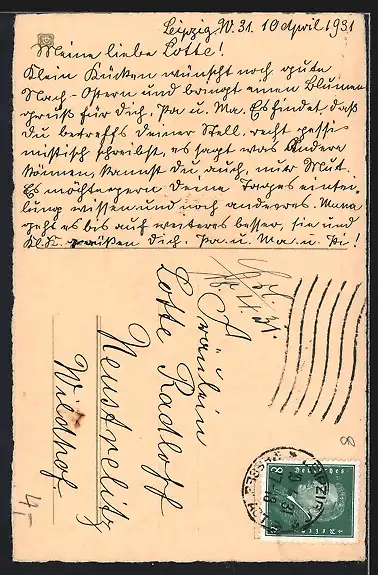 Leipzig W. 31. 10 April 1931
Meine liebe Lotte!
Klein Kücken wünscht noch gute
Nach-Ostern und bringt einen Blumen
gruß für Dich, Pa u. Ma. Es findet, daß
Du betreffs Deiner Stell. recht pessi
mistisch schreibst, es sagt was Andere
können, kannst Du auch, nur Mut.
Es möchte gern Deine Tages eintei
lung wissen und noch anderes. Mama
geht es bis auf weiteres besser, sie und
Kl. K. grüßen Dich, Pa. u. Ma. u.
Fräulein
Lotte Radloff
Neustrelitz
Wildhof.
8
Deutsches
Reich
LEIPZIG
4,-
8